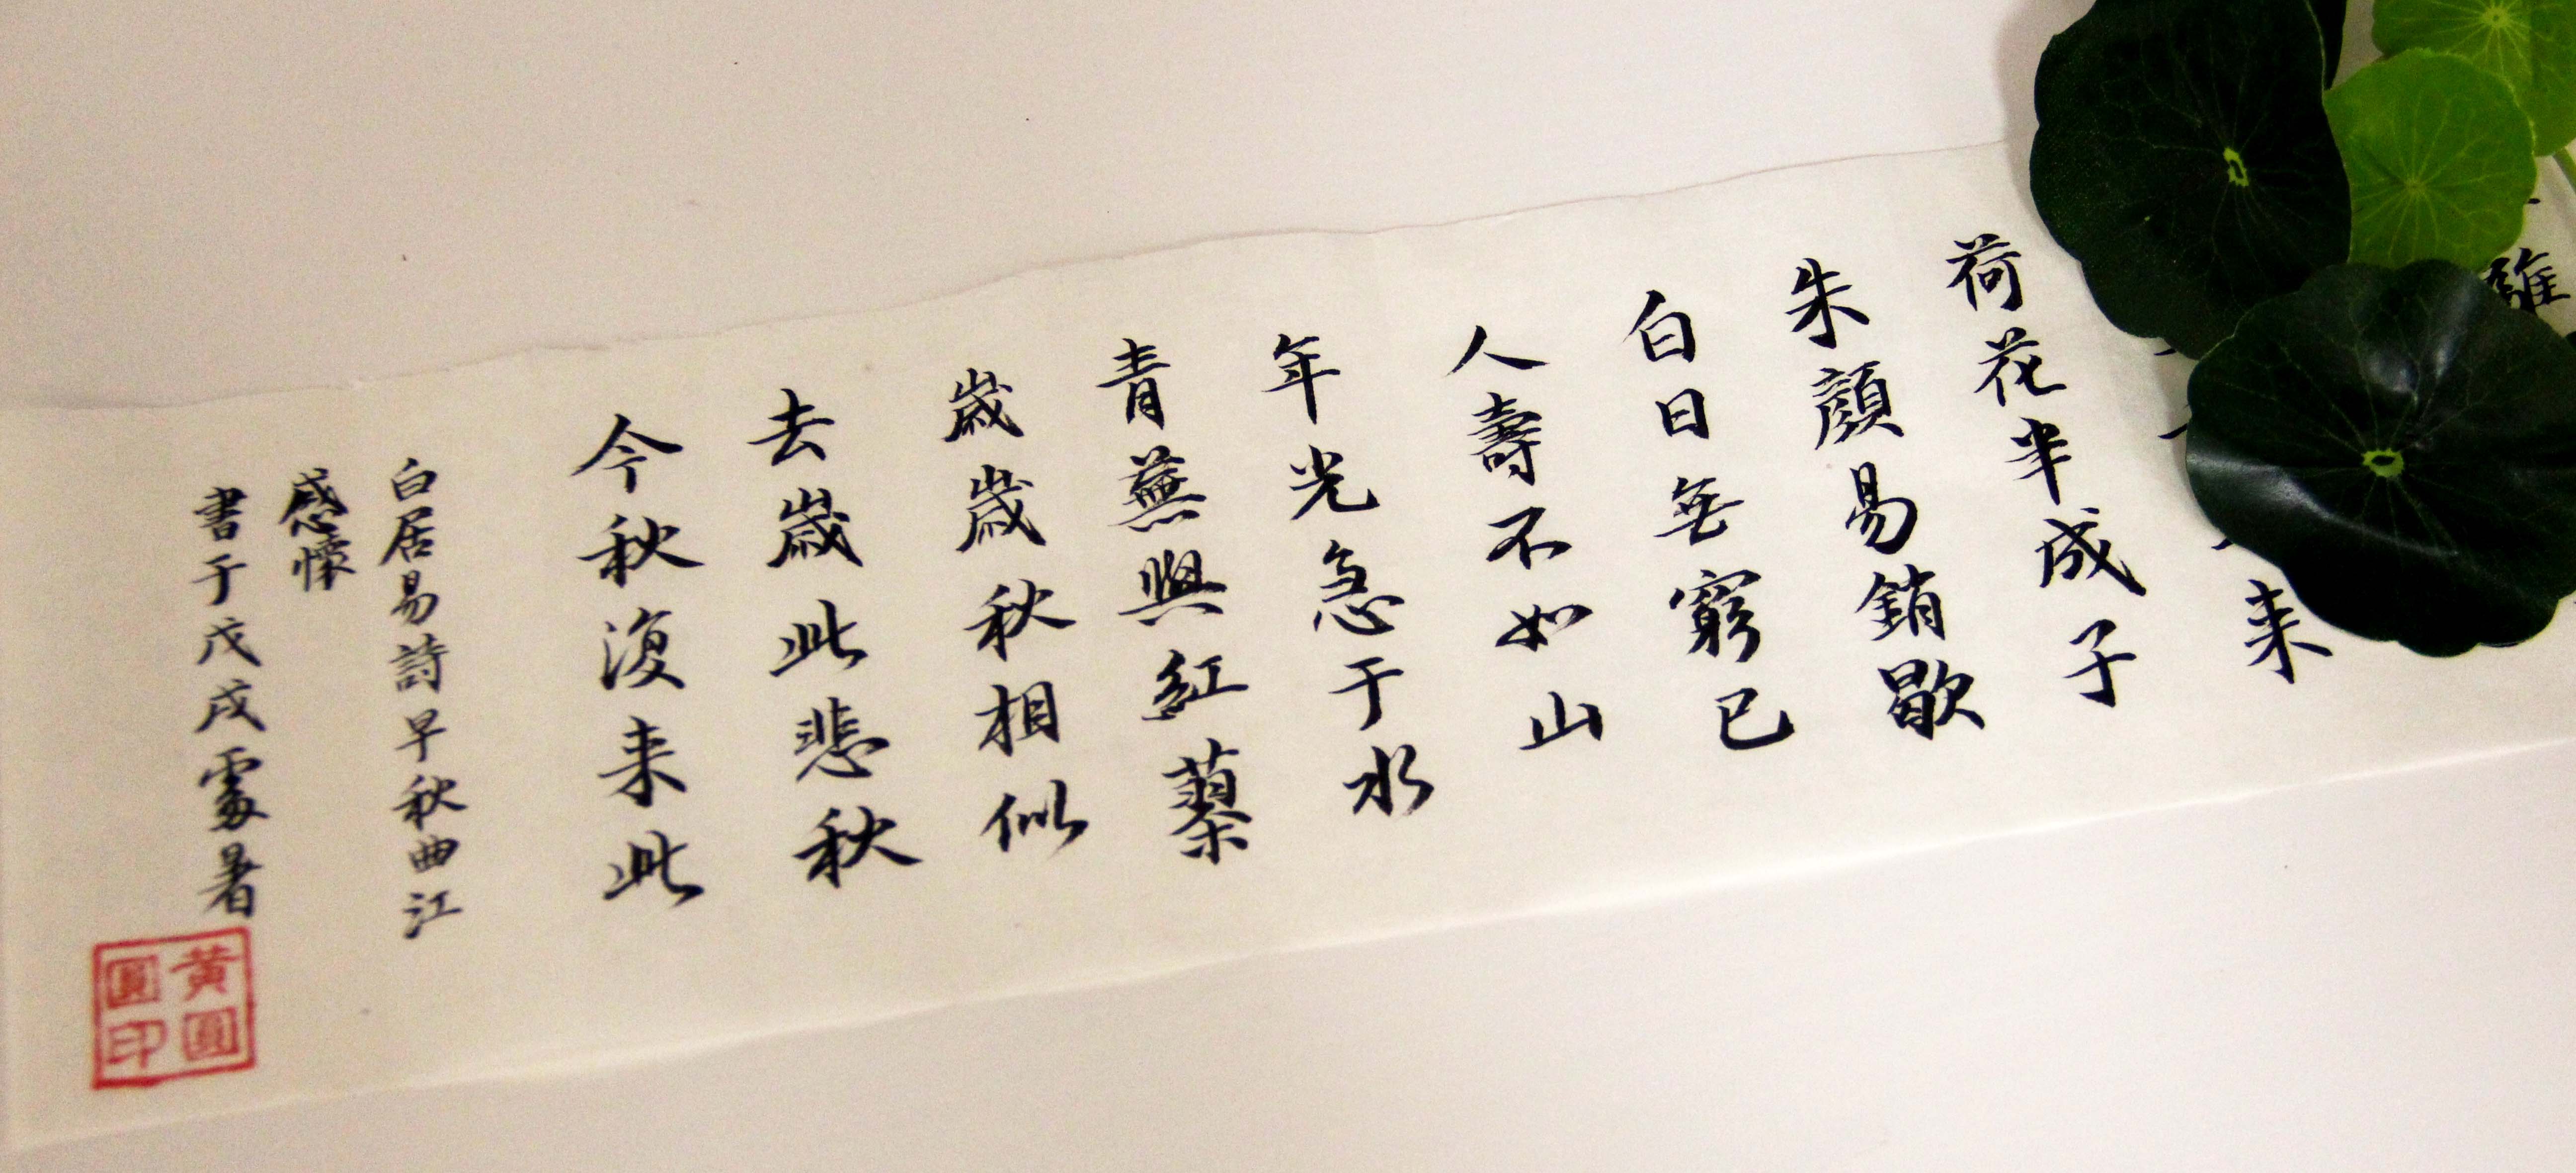 離
来
荷花半成子
朱顔易銷歇
白日無窮已
人壽不如山
年光急于水
青蕪與紅蓼
歲歲秋相似
去歲此悲秋
今秋復来此
白居易詩早秋曲江
感懷
書于戊戌處暑
黃圓圓印